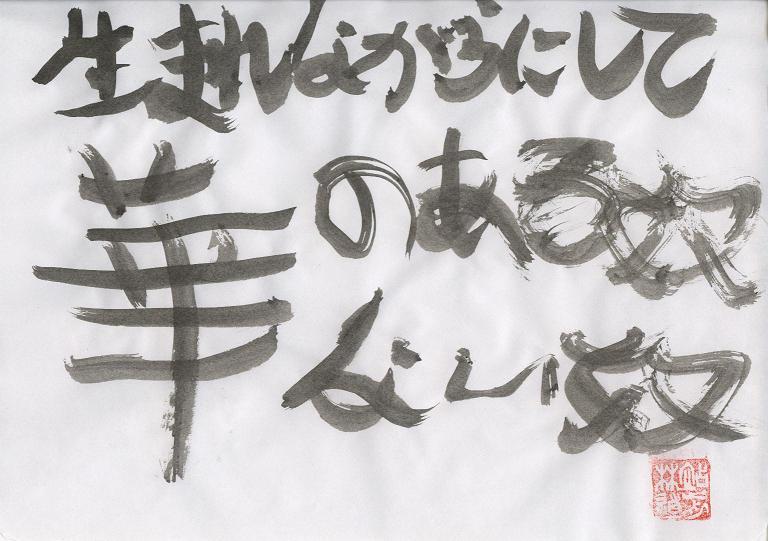 生まれながらにして
華のある奴
ない奴